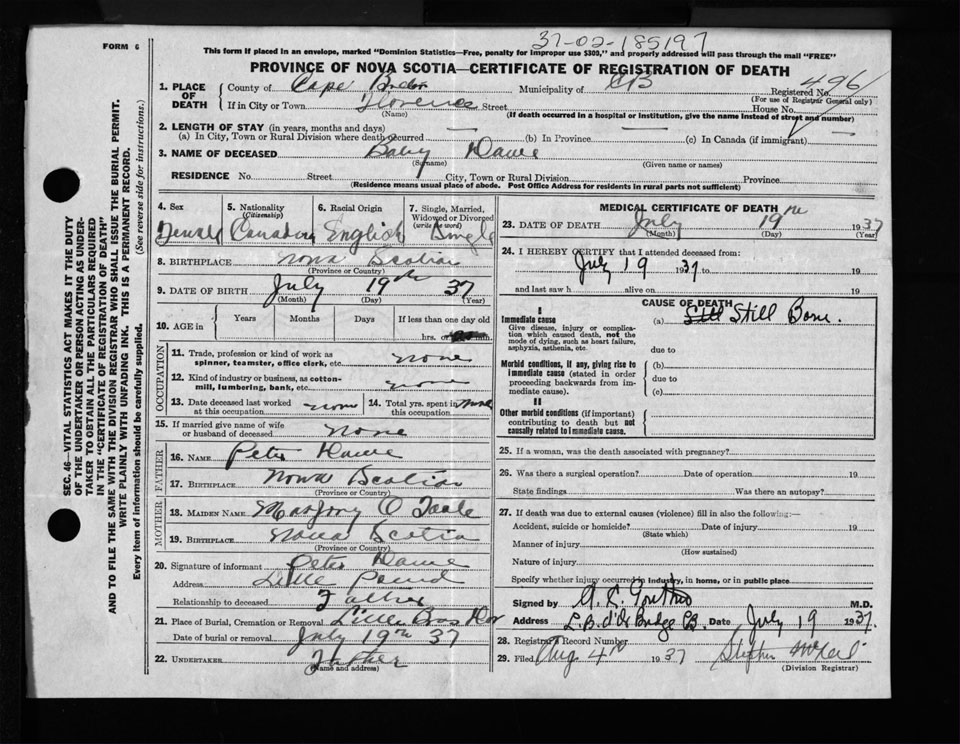 37-02-185197
FORM 6
This form if placed in an envelope, marked "Dominion Statistics—Free, penalty for improper use $300," and properly addressed will pass through the mail "FREE"
PROVINCE OF NOVA SCOTIA—CERTIFICATE OF REGISTRATION OF DEATH
1. PLACE OF DEATH
County of Cape Breton Municipality of CB Registered No. 496
(For use of Registrar General only)
If in City or Town Florence Street House No.
(Name) (If death occurred in a hospital or institution, give the name instead of street and number)
2. LENGTH OF STAY (in years, months and days)
(a) In City, Town or Rural Division where death occurred — (b) In Province — (c) In Canada (if immigrant)
3. NAME OF DECEASED Baby Dawe
(Surname) (Given name or names)
RESIDENCE No. Street City, Town or Rural Division Province
(Residence means usual place of abode. Post Office Address for residents in rural parts not sufficient)
4. Sex 5. Nationality (Citizenship) 6. Racial Origin 7. Single, Married, Widowed or Divorced (write the word)
Female Canadian English Single
8. BIRTHPLACE Nova Scotia
(Province or Country)
9. DATE OF BIRTH July 19th 37
(Month) (Day) (Year)
10. AGE in Years Months Days If less than one day old
hrs. or min.
OCCUPATION
11. Trade, profession or kind of work as spinner, teamster, office clerk, etc. none
12. Kind of industry or business, as cotton-mill, lumbering, bank, etc. none
13. Date deceased last worked at this occupation none 14. Total yrs. spent in this occupation none
15. If married give name of wife or husband of deceased none
FATHER
16. NAME Peter Dawe
17. BIRTHPLACE Nova Scotia
(Province or Country)
MOTHER
18. MAIDEN NAME Marjory O Toole
19. BIRTHPLACE Nova Scotia
(Province or Country)
20. Signature of informant Peter Dawe
Address Little Pond
Relationship to deceased Father
21. Place of Burial, Cremation or Removal Little Bras Dor
Date of burial or removal July 19th 37
22. UNDERTAKER Father
(Name and address)
MEDICAL CERTIFICATE OF DEATH
23. DATE OF DEATH July 19th 1937
(Month) (Day) (Year)
24. I HEREBY CERTIFY that I attended deceased from:
July 19 1937 to 19
and last saw h alive on 19
CAUSE OF DEATH
I
Immediate cause (a) Still Still Born.
Give disease, injury or complication which caused death, not the mode of dying, such as heart failure, asphyxia, asthenia, etc.
due to
Morbid conditions, if any, giving rise to immediate cause (stated in order proceeding backwards from immediate cause).
(b)
due to
(c)
II
Other morbid conditions (if important) contributing to death but not causally related to immediate cause.
25. If a woman, was the death associated with pregnancy?
26. Was there a surgical operation? Date of operation 19
State findings Was there an autopsy?
27. If death was due to external causes (violence) fill in also the following:—
Accident, suicide or homicide? Date of injury 19
(State which)
Manner of injury
(How sustained)
Nature of injury
Specify whether injury occurred in industry, in home, or in public place
Signed by M.D.
Address L.B. d'Or Bridge CB. Date July 19 1937.
28. Registration Record Number
29. Filed Aug 4th 1937 Stephen McNeil
(Division Registrar)
SEC. 46—VITAL STATISTICS ACT MAKES IT THE DUTY
OF THE UNDERTAKER OR PERSON ACTING AS UNDER-
TAKER TO OBTAIN ALL THE PARTICULARS REQUIRED
IN THE "CERTIFICATE OF REGISTRATION OF DEATH"
AND TO FILE THE SAME WITH THE DIVISION REGISTRAR WHO SHALL ISSUE THE BURIAL PERMIT.
WRITE PLAINLY WITH UNFADING INK. THIS IS A PERMANENT RECORD.
Every item of information should be carefully supplied. (See reverse side for instructions.)